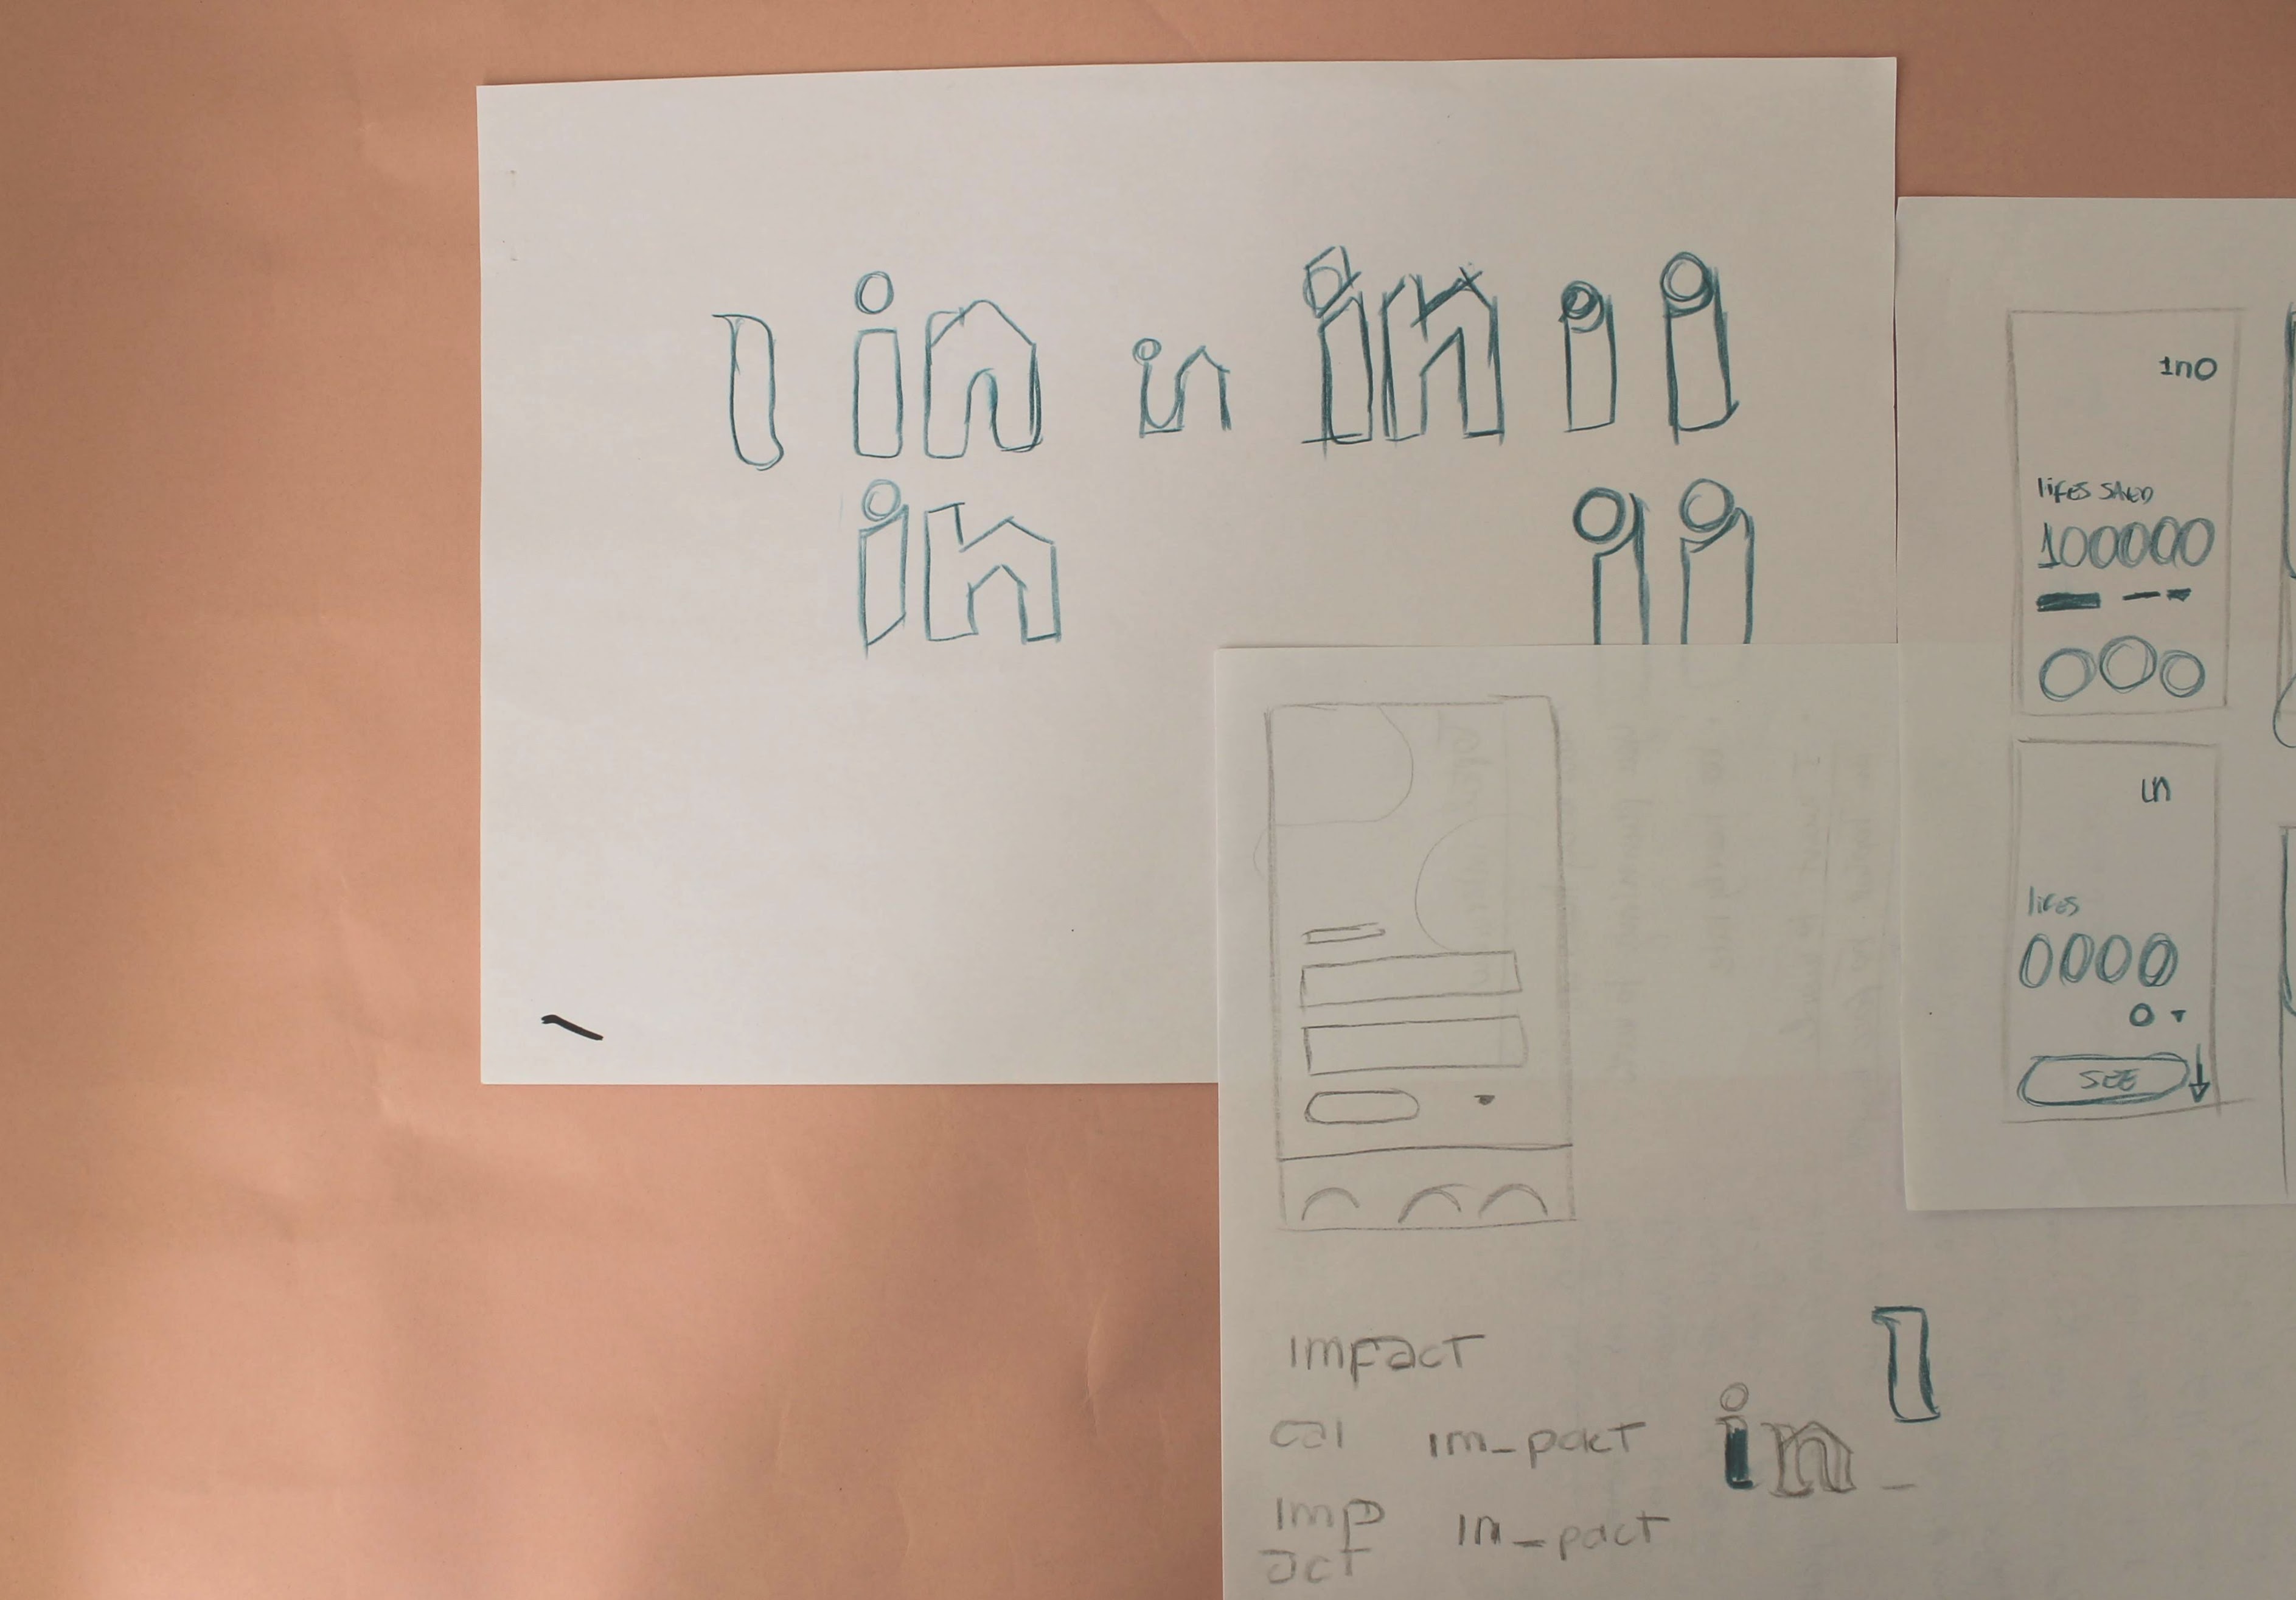 l in in in i i
in i i
1n0
lifes saved
100000
in
lifes
0000
SEE
impact
cal im_pact in_ l
imp in_pact
act